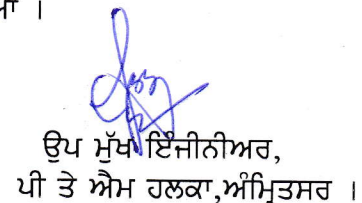 ਉਪ ਮੁੱਖ ਇੰਜੀਨੀਅਰ,
ਪੀ ਤੇ ਐਮ ਹਲਕਾ,ਅੰਮ੍ਰਿਤਸਰ ।